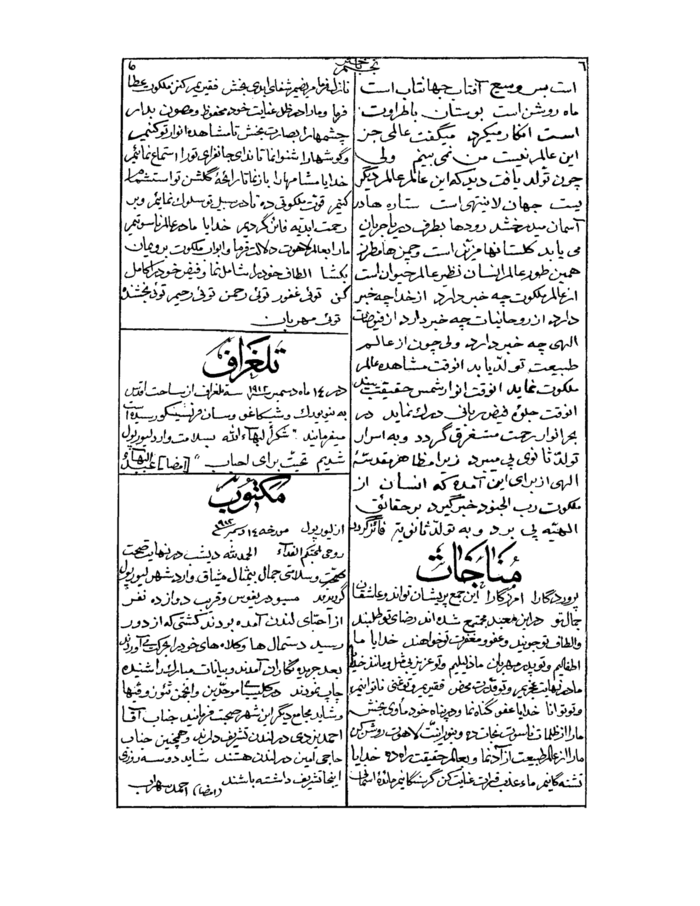 ٦
نجم باختر
٦
است بس وسیع آفتاب جهانتاب است
ماه روشن است بوستان باطراوت
است انکار میکرد میگفت عالمی جز
این عالم نیست من نمی بینم ولی
چون تولد یافت دید که این عالم عالم دیگر
یست جهان لا یتناهی است ستاره ها در
آسمان میدرخشد رودها بطرف دریا جریان
می یابد گلستانها مزین است و چمن ها مطرز
همین طور عالم انسان نظیر عالم حیوان است
از عالم ملکوت چه خبر دارد از خدا چه خبر
دارد از روحانیات چه خبر دارد از فیوضات
الهی چه خبر دارد ولی چون از عالم
طبیعت تولد یابد انوقت مشاهده عالم
ملکوت نماید انوقت انوار شمس حقیقت بیند
انوقت جلوه فیض ربانی درک نماید در
بحر انوار رحمت مستغرق گردد و به اسرار
تولد ثانوی پی میبرد زیرا مظاهر مقدسه
الهی از برای این آمده که انسان از
ملکوت رب الجنود خبر گیرد بر حقائق
الهیه پی برد و به تولد ثانویه فائز گردد
مناجات
پروردگارا امرزگارا این جمع پریشان تواند و عاشقان
جمال تو در این معبد مجتمع شده اند رضای تو طلبند
والطاف تو جویند و عفو و مغفرت تو خواهند خدایا ما
اطفالیم و تو پدر مهربان ما ذلیلیم و تو عزیز بی مثل و مانند خدایا
ما در نهایت عجزیم و تو قدرت محض فقیریم و تو غنی ناتوانیم
و تو توانا خدایا عفو گناه نما و در پناه خود ماوی بخش
ما را از ظلمات ناسوت نجات ده و بنورانیت لاهوت روشن کن
ما را از عالم طبیعت آزاد نما و بعالم حقیقت راه ده خدایا
تشنه گانیم ماء عذب فرات عنایت کن گرسنگانیم مائده آسمانی
نازل فرما مریضیم شفای ابدی بخش فقیریم کنز ملکوت عطا
فرما و ما را در ظل عنایت خود محفوظ و مصون بدار
چشمها را بصارت بخش تا مشاهده انوار تو کنیم
و گوشها را شنوا فما تا ندای جانفزای تو را استماع نمائیم
خدایا مشامها را باز نما تا رائحه گلشن تو استشمام
کنیم قوت ملکوتی ده تا در سبیل تو سلوک نمائیم و بر
رحمت ابدیه فائز گردیم خدایا ما در عالم ناسوتیم
ما را بعالم لاهوت دلالت فرما و ابواب ملکوت بر رویمان
بگشا الطاف خود را شامل نما و فیض خود را کامل
کن توئی غفور توئی رحمن توئی رحیم توئی بخشنده
توئی مهربان
تلغراف
در ۱٤ ماه دسمبر ۱۹۱۲ سنه تلغراف از ساحت اقدس
به نیویورک و شیکاغو و سان فرنسیسکو رسیده است
میفرمایند "شکراً لبهاء الله بسلامت وارد لیورپول
شدیم تحیت برای احباب" [امضا] عبدالبهاء
مکتوب
از لورپول مورخه ۱٤ دسمبر ۱۹۱۲
روحی لمحبتکم الفداء الحمد لله دیشب در نهایت صحت
و سلامتی جمال بیمثال میثاق وارد شهر لیورپول
گردیدند مسیو دریفوس و قریب دوازده نفر
از احبای لندن آمده بودند کشتی که از دور
رسید دستمال ها و کلاه های خود را بحرکت آوردند
بعد جریده نگاران آمدند و بیانات مبارک را شنیده
چاپ نمودند در کلیسای موحدین و انجمن تئوزوفیها
و شاید مجامع دیگر این شهر صحبت فرمایند جناب آقا
احمد یزدی در لندن تشریف دارند و همچنین جناب
حاجی امین در لندن هستند شاید دو سه روزی
اینجا تشریف داشته باشند
(امضا) احمد سهراب